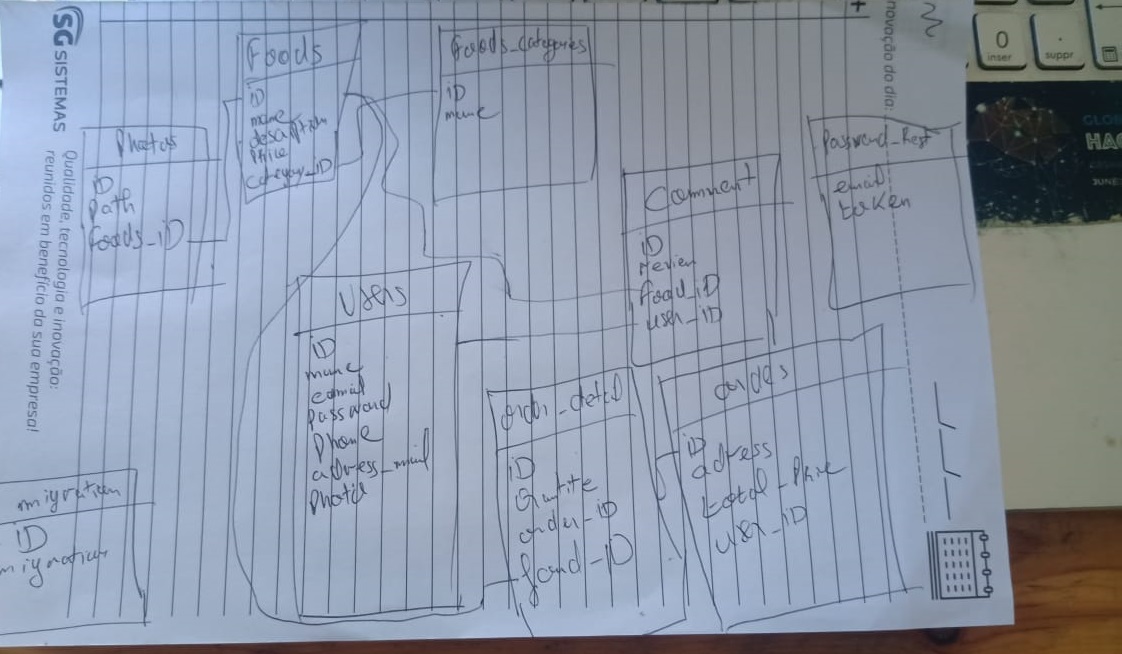 SG SISTEMAS
Qualidade, tecnologia e inovação:
reunidos em benefício da sua empresa!
novação do dia:
Foods
ID
name
description
Price
category_ID
Foods_Categories
ID
name
Photos
ID
Path
foods_iD
Password_Rest
email
token
Comment
ID
review
food_iD
user_ID
Users
ID
name
email
Password
Phone
address_mail
Photo
order_detail
ID
Qantite
order_iD
food_ID
ordes
ID
adress
total_Price
user_ID
migration
ID
migration
0
inser
.
suppr
GLOB
HA
JUNE